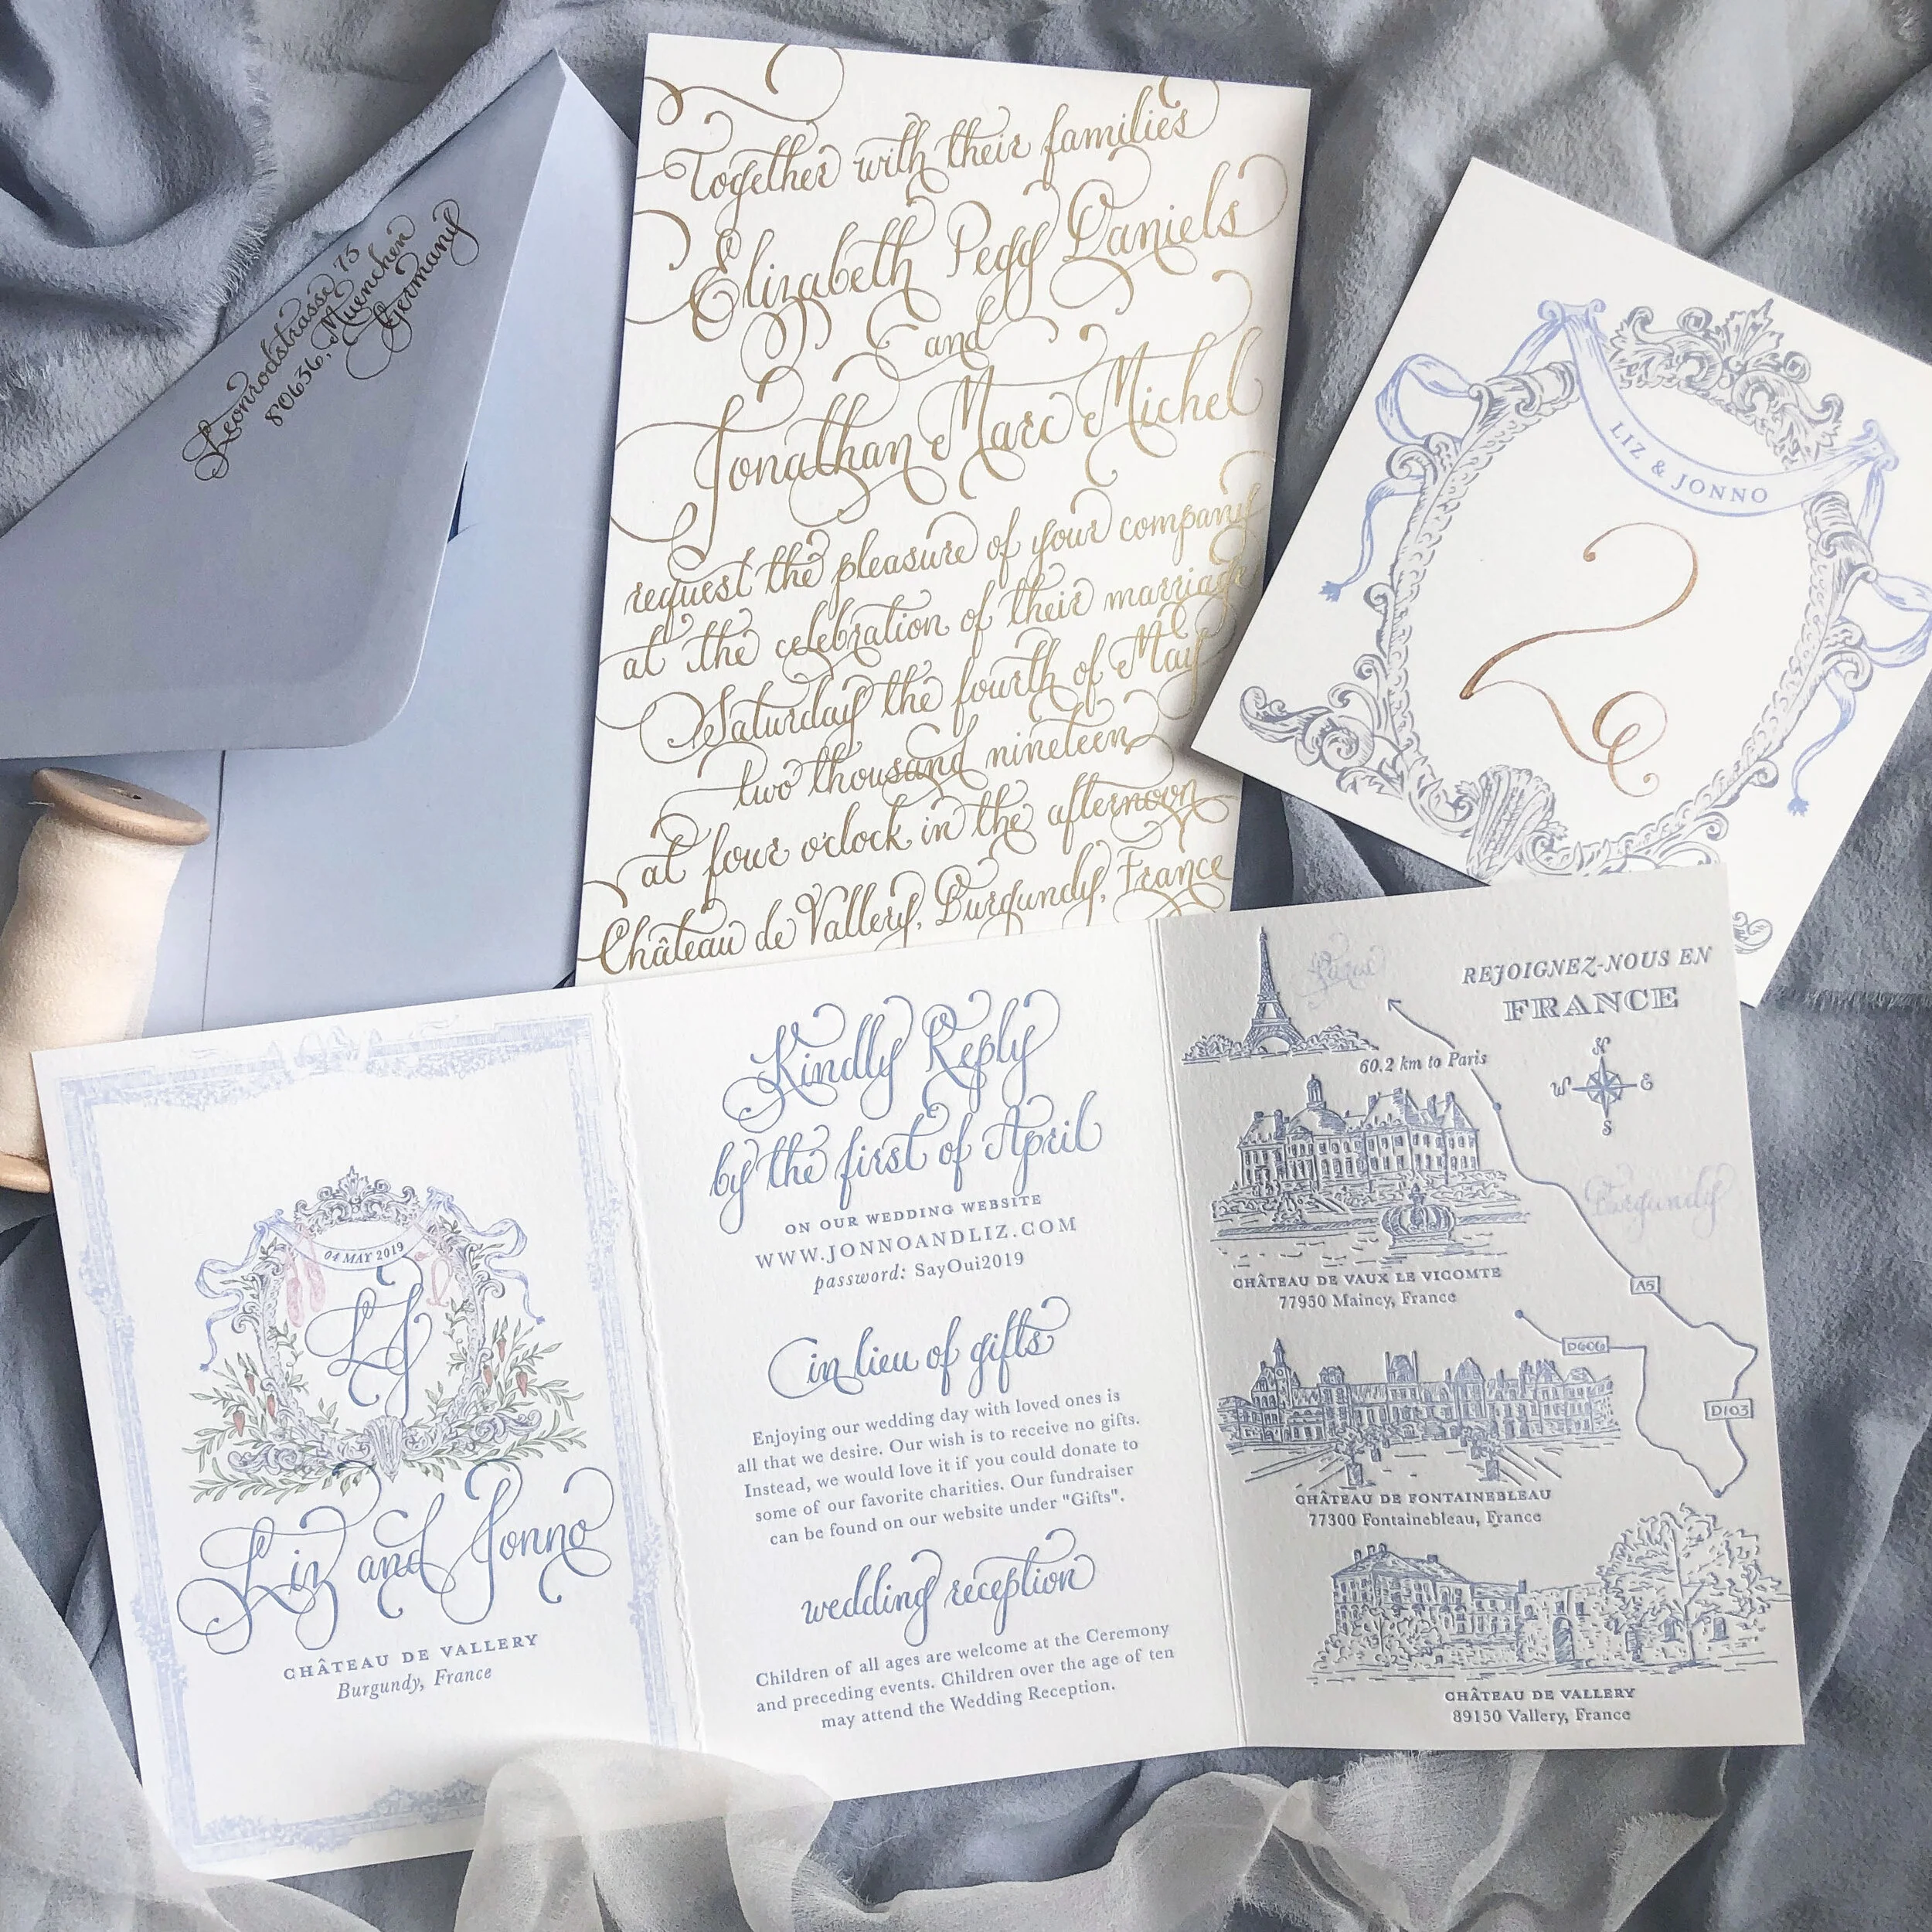 Leonrodstrasse 75
80636, Muenchen
Germany
Together with their families
Elizabeth Pegg Daniels
and
Jonathan Marc Michel
request the pleasure of your company
at the celebration of their marriage
Saturday the fourth of May
two thousand nineteen
at four o'clock in the afternoon
Château de Vallery, Burgundy, France
LIZ & JONNO
2
04 MAY 2019
LJ
Liz and Jonno
CHÂTEAU DE VALLERY
Burgundy, France
Kindly Reply
by the first of April
ON OUR WEDDING WEBSITE
WWW.JONNOANDLIZ.COM
password: SayOui2019
in lieu of gifts
Enjoying our wedding day with loved ones is
all that we desire. Our wish is to receive no gifts.
Instead, we would love it if you could donate to
some of our favorite charities. Our fundraiser
can be found on our website under "Gifts".
wedding reception
Children of all ages are welcome at the Ceremony
and preceding events. Children over the age of ten
may attend the Wedding Reception.
REJOIGNEZ-NOUS EN
FRANCE
Paris
60.2 km to Paris
N
W E
S
Burgundy
CHÂTEAU DE VAUX LE VICOMTE
77950 Maincy, France
A5
D606
D103
CHÂTEAU DE FONTAINEBLEAU
77300 Fontainebleau, France
CHÂTEAU DE VALLERY
89150 Vallery, France